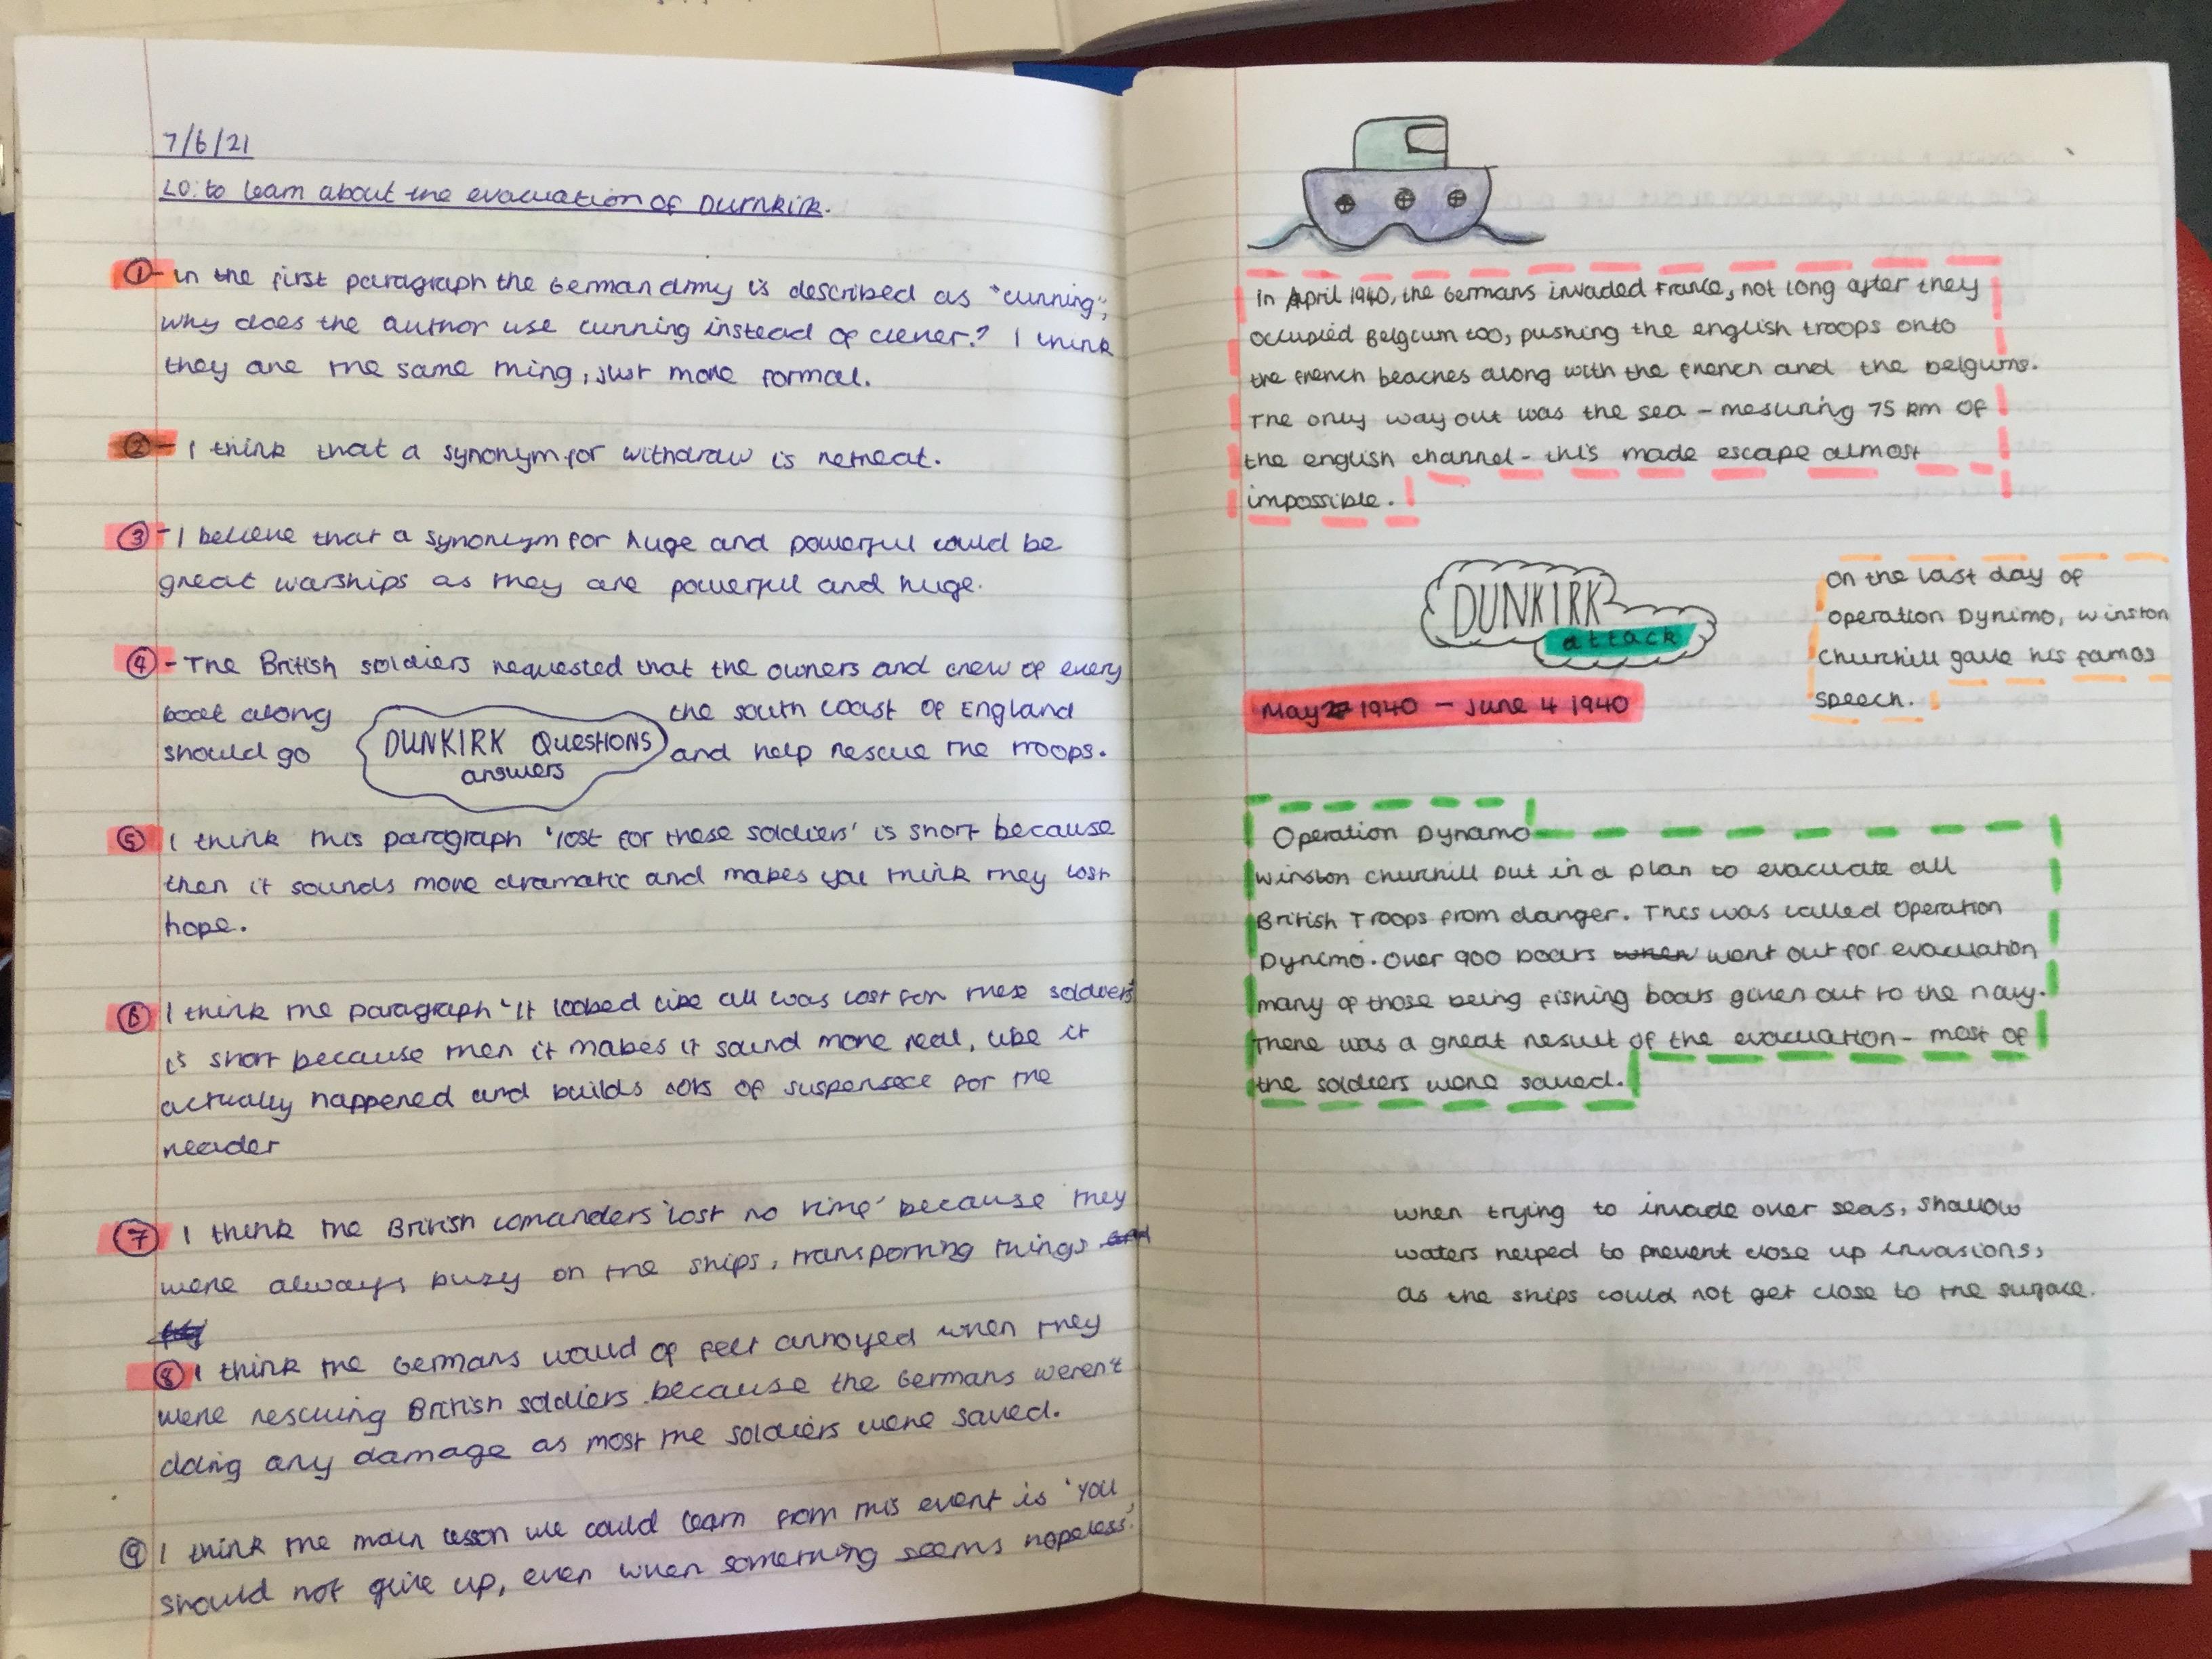 7/6/21
LO: to learn about the evacuation of Durnkirk.
① - In the first paragraph the German army is described as "cunning",
why does the author use cunning instead of clever? I think
they are the same thing, just more formal.
② - I think that a synonym for withdraw is retreat.
③ - I believe that a synonym for huge and powerful could be
great warships as they are powerful and huge.
④ - The British soldiers requested that the owners and crew of every
boat along the south coast of England
should go and help rescue the troops.
DUNKIRK QUESTIONS
answers
⑤ I think this paragraph 'lost for these soldiers' is short because
then it sounds more dramatic and makes you think they lost
hope.
⑥ I think the paragraph 'It looked like all was lost for these soldiers'
is short because then it makes it sound more real, like it
actually happened and builds lots of suspensece for the
reader
⑦ I think the British comanders 'lost no time' because they
were always busy on the ships, transporting things
⑧ I think the Germans would of felt annoyed when they
were rescuing British soldiers because the Germans weren't
doing any damage as most the soldiers were saved.
⑨ I think the main lesson we could learn from this event is 'you
should not give up, even when something seems hopeless'.
In April 1940, the Germans invaded France, not long after they
occupied Belgium too, pushing the english troops onto
the french beaches along with the french and the belgums.
The only way out was the sea - mesuring 75 km of
the english channel - this made escape almost
impossible.
DUNKIRK
attack
On the last day of
Operation Dynimo, winston
Churchill gave his famos
speech.
May 27 1940 - June 4 1940
Operation Dynamo
Winston Churchill put in a plan to evacuate all
British Troops from danger. This was called Operation
Dynimo. Over 900 boats when went out for evacuation
many of those being fishing boats given out to the navy.
There was a great result of the evacuation - most of
the soldiers were saved.
When trying to invade over seas, shallow
waters helped to prevent close up invasions,
as the ships could not get close to the surface.